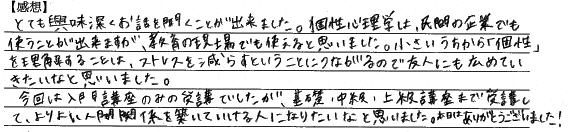 【感想】
とても興味深くお話を聞くことが出来ました。個性心理学は、民間の企業でも
使うことが出来ますが、教育の現場でも使えると思いました。小さいうちから「個性」
を理解することは、ストレスを減らすということにつながるので友人にも広めてい
きたいなと思いました。
今回は入門講座のみの受講でしたが、基礎・中級・上級講座まで受講し
て、よりよい人間関係を築いていける人になりたいなと思いました。本日はありがとうございました!